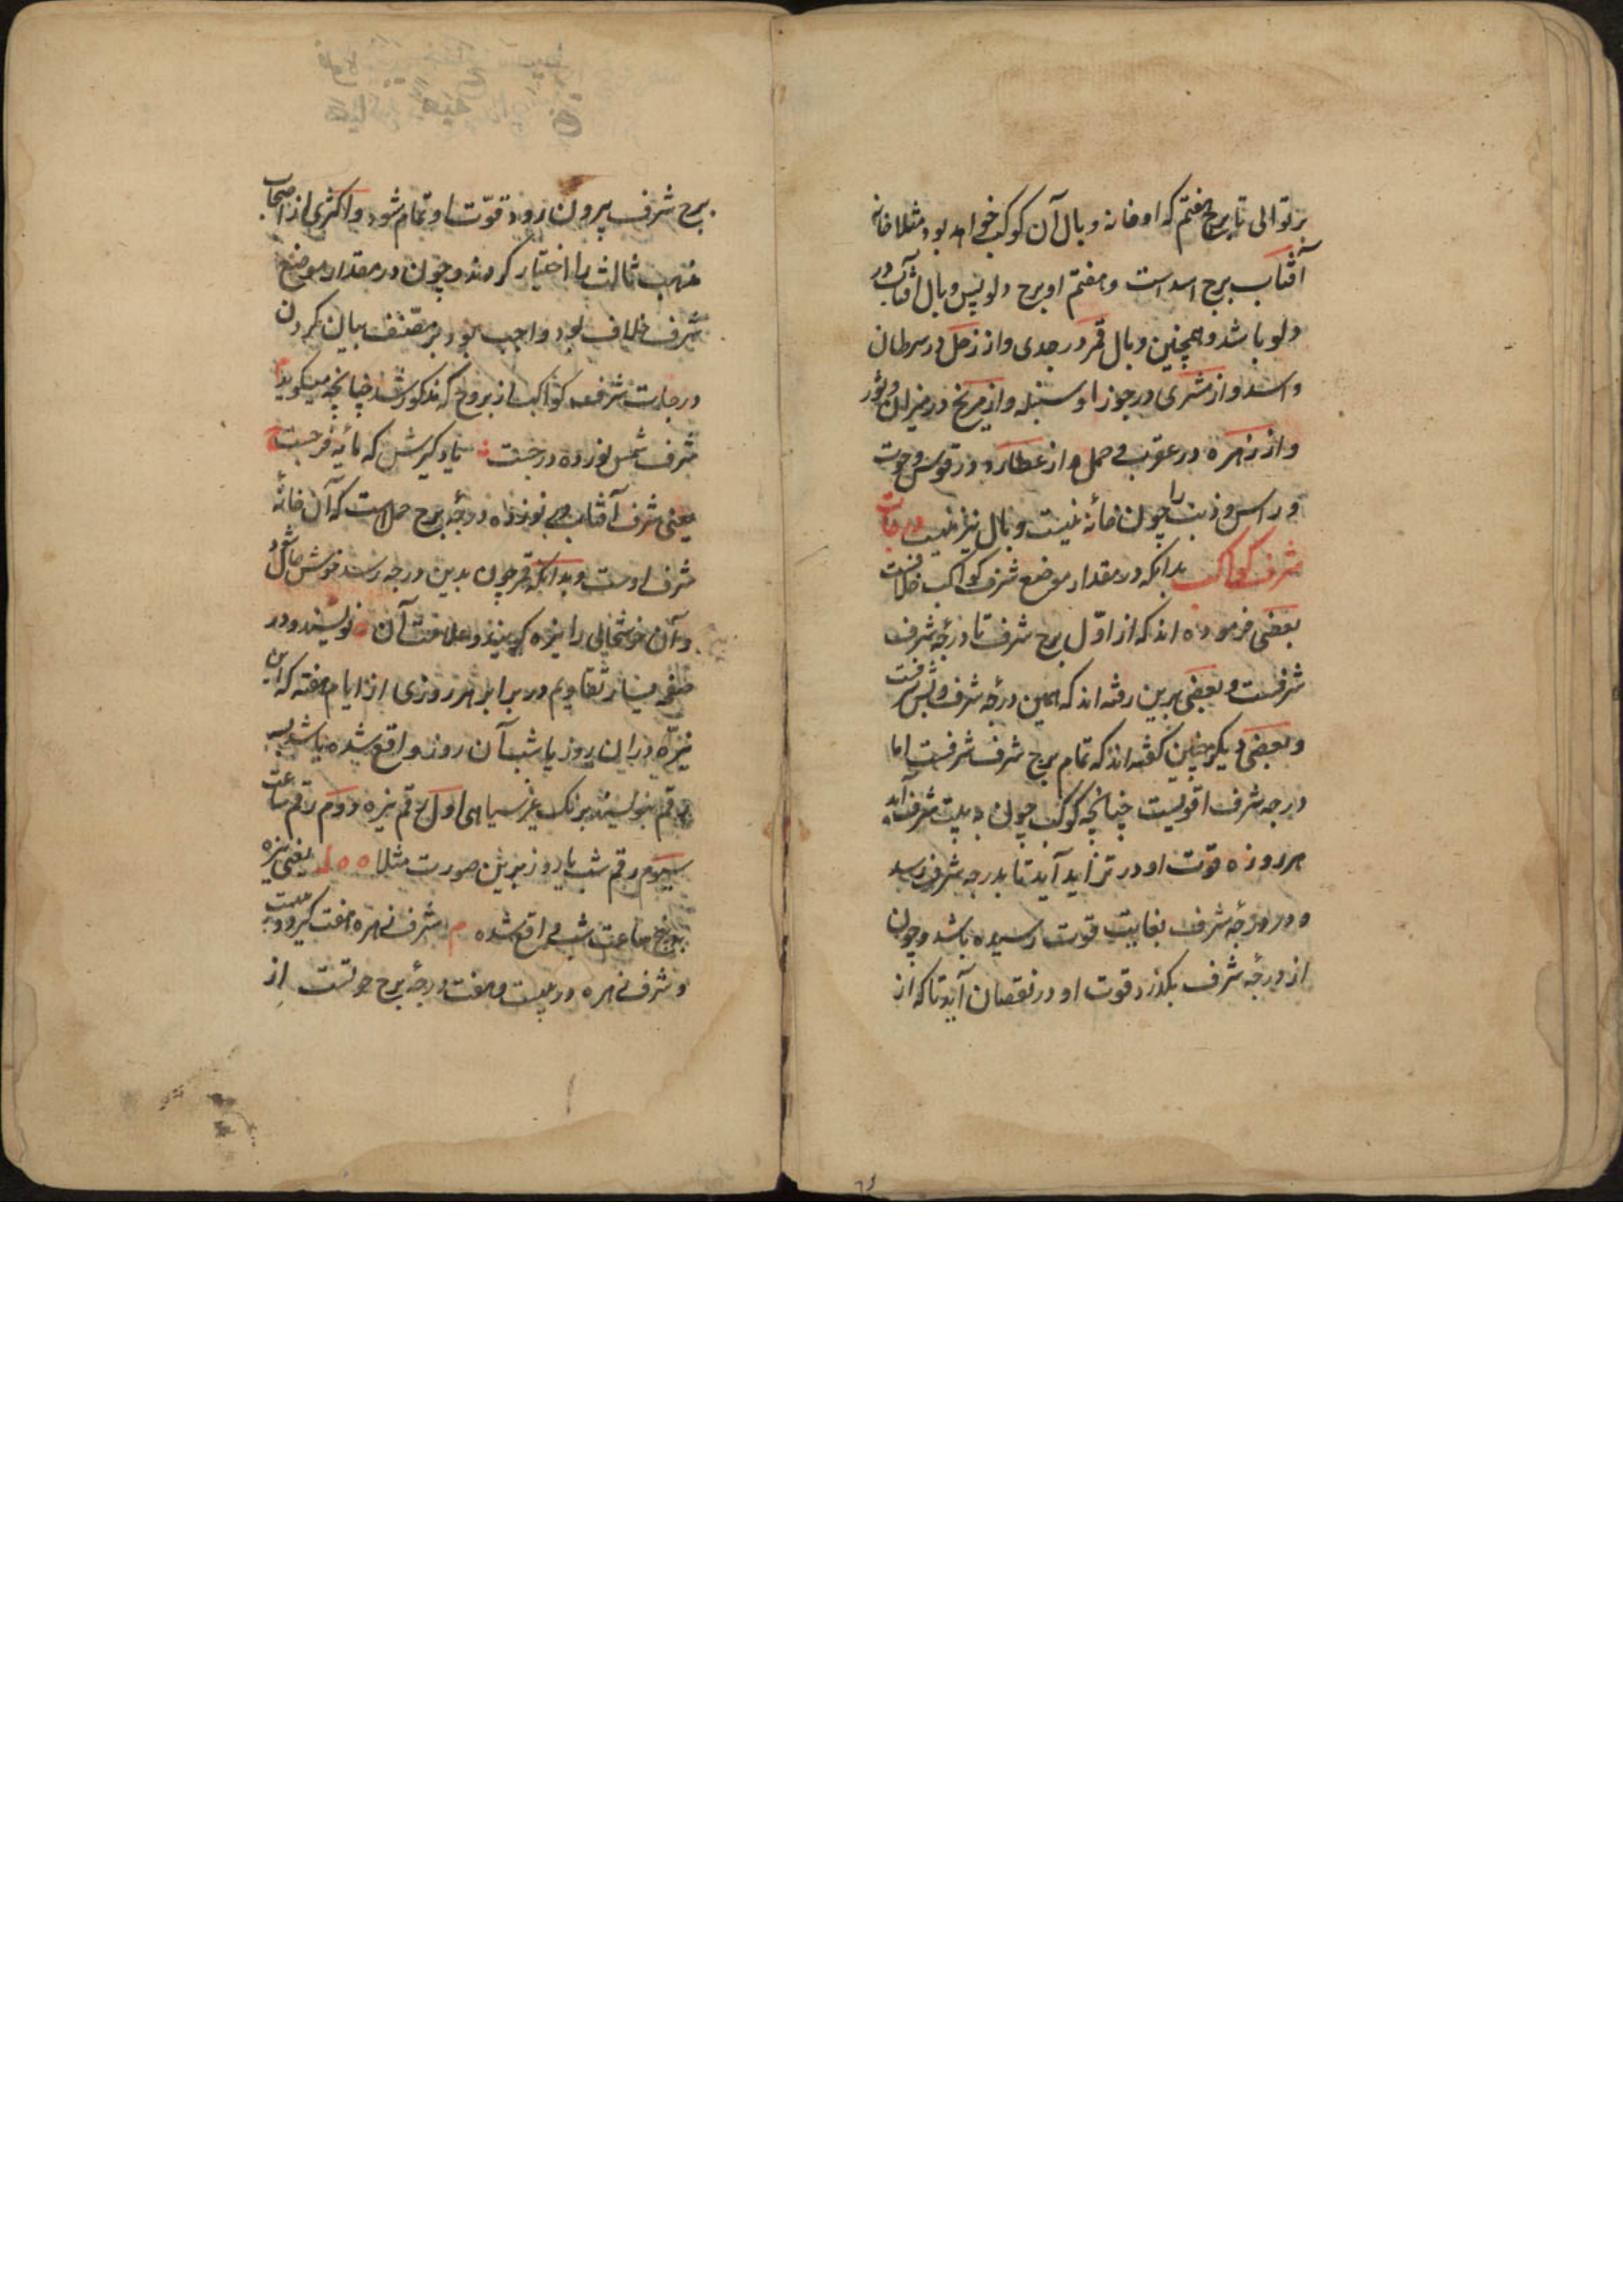 بر توالی تا برج هفتم که او خانه وبال آن کوکب خواهد بود مثلا خانه
آفتاب برج اسد است و هفتم او برج دلو پس وبال آفتاب در
دلو باشد و همچنین وبال قمر در جدی و از زحل در سرطان
و اسد و از مشتری در جوزا و سنبله و از مریخ در میزان و ثور
و از زهره در عقرب و حمل و از عطارد در قوس و حوت
و راس و ذنب را چون خانه نیست وبال نیز نیست درجات
شرف کواکب بدانکه در مقدار موضع شرف کواکب خلافست
بعضی فرموده اند که از اوّل برج شرف تا درجهٔ شرف
شرفست و بعضی برین رفته اند که همین درجهٔ شرف و بس شرفست
و بعضی دیگر چنین گفته اند که تمام برج شرف شرفست اما
درجه شرف اقویست چنانچه کوکب چون به بیت شرف آید
هر روزه قوت او در تزاید آید تا بدرجه شرف رسد
و در درجهٔ شرف بغایت قوت رسیده باشد و چون
از درجهٔ شرف بگذرد قوت او در نقصان آید تا که از
برج شرف بیرون رود قوّت او تمام شود و اکثری از اصحاب
مذهب ثالث را اختیار کردند و چون در مقدار موضع
شرف خلاف بود واجب بود بر مصنف بیان کردن
درجات شرف کواکب از بروج که مذکور شد چنانچه میگوید م
شرف شمس نوزده درجست یاد گیرش که مایه فرحست
یعنی شرف آفتاب نوزده درجهٔ برج حمل است که آن خانهٔ
شرف اوست و بدانکه قمر چون بدین درجه رسد خوش حال شود
و آن خوشحالی را نیزه گویند و علامت آن ه نویسند و در
صفحه یسار تقاویم در برابر هر روزی از ایام هفته که این
نیزه در این روز یا شب آن روز واقع شده باشد سه
رقم بنویسند برنگ غیر سیاهی اول رقم نیزه دوم رقم ساعت
سیوم رقم شب یا روز برین صورت مثلا ه ه ل یعنی نیزه
پنج ساعت شب واقع شده م شرف زهره هفت گیر و بیست
و شرف زهره در بیست و هفت درجهٔ برج حوتست از